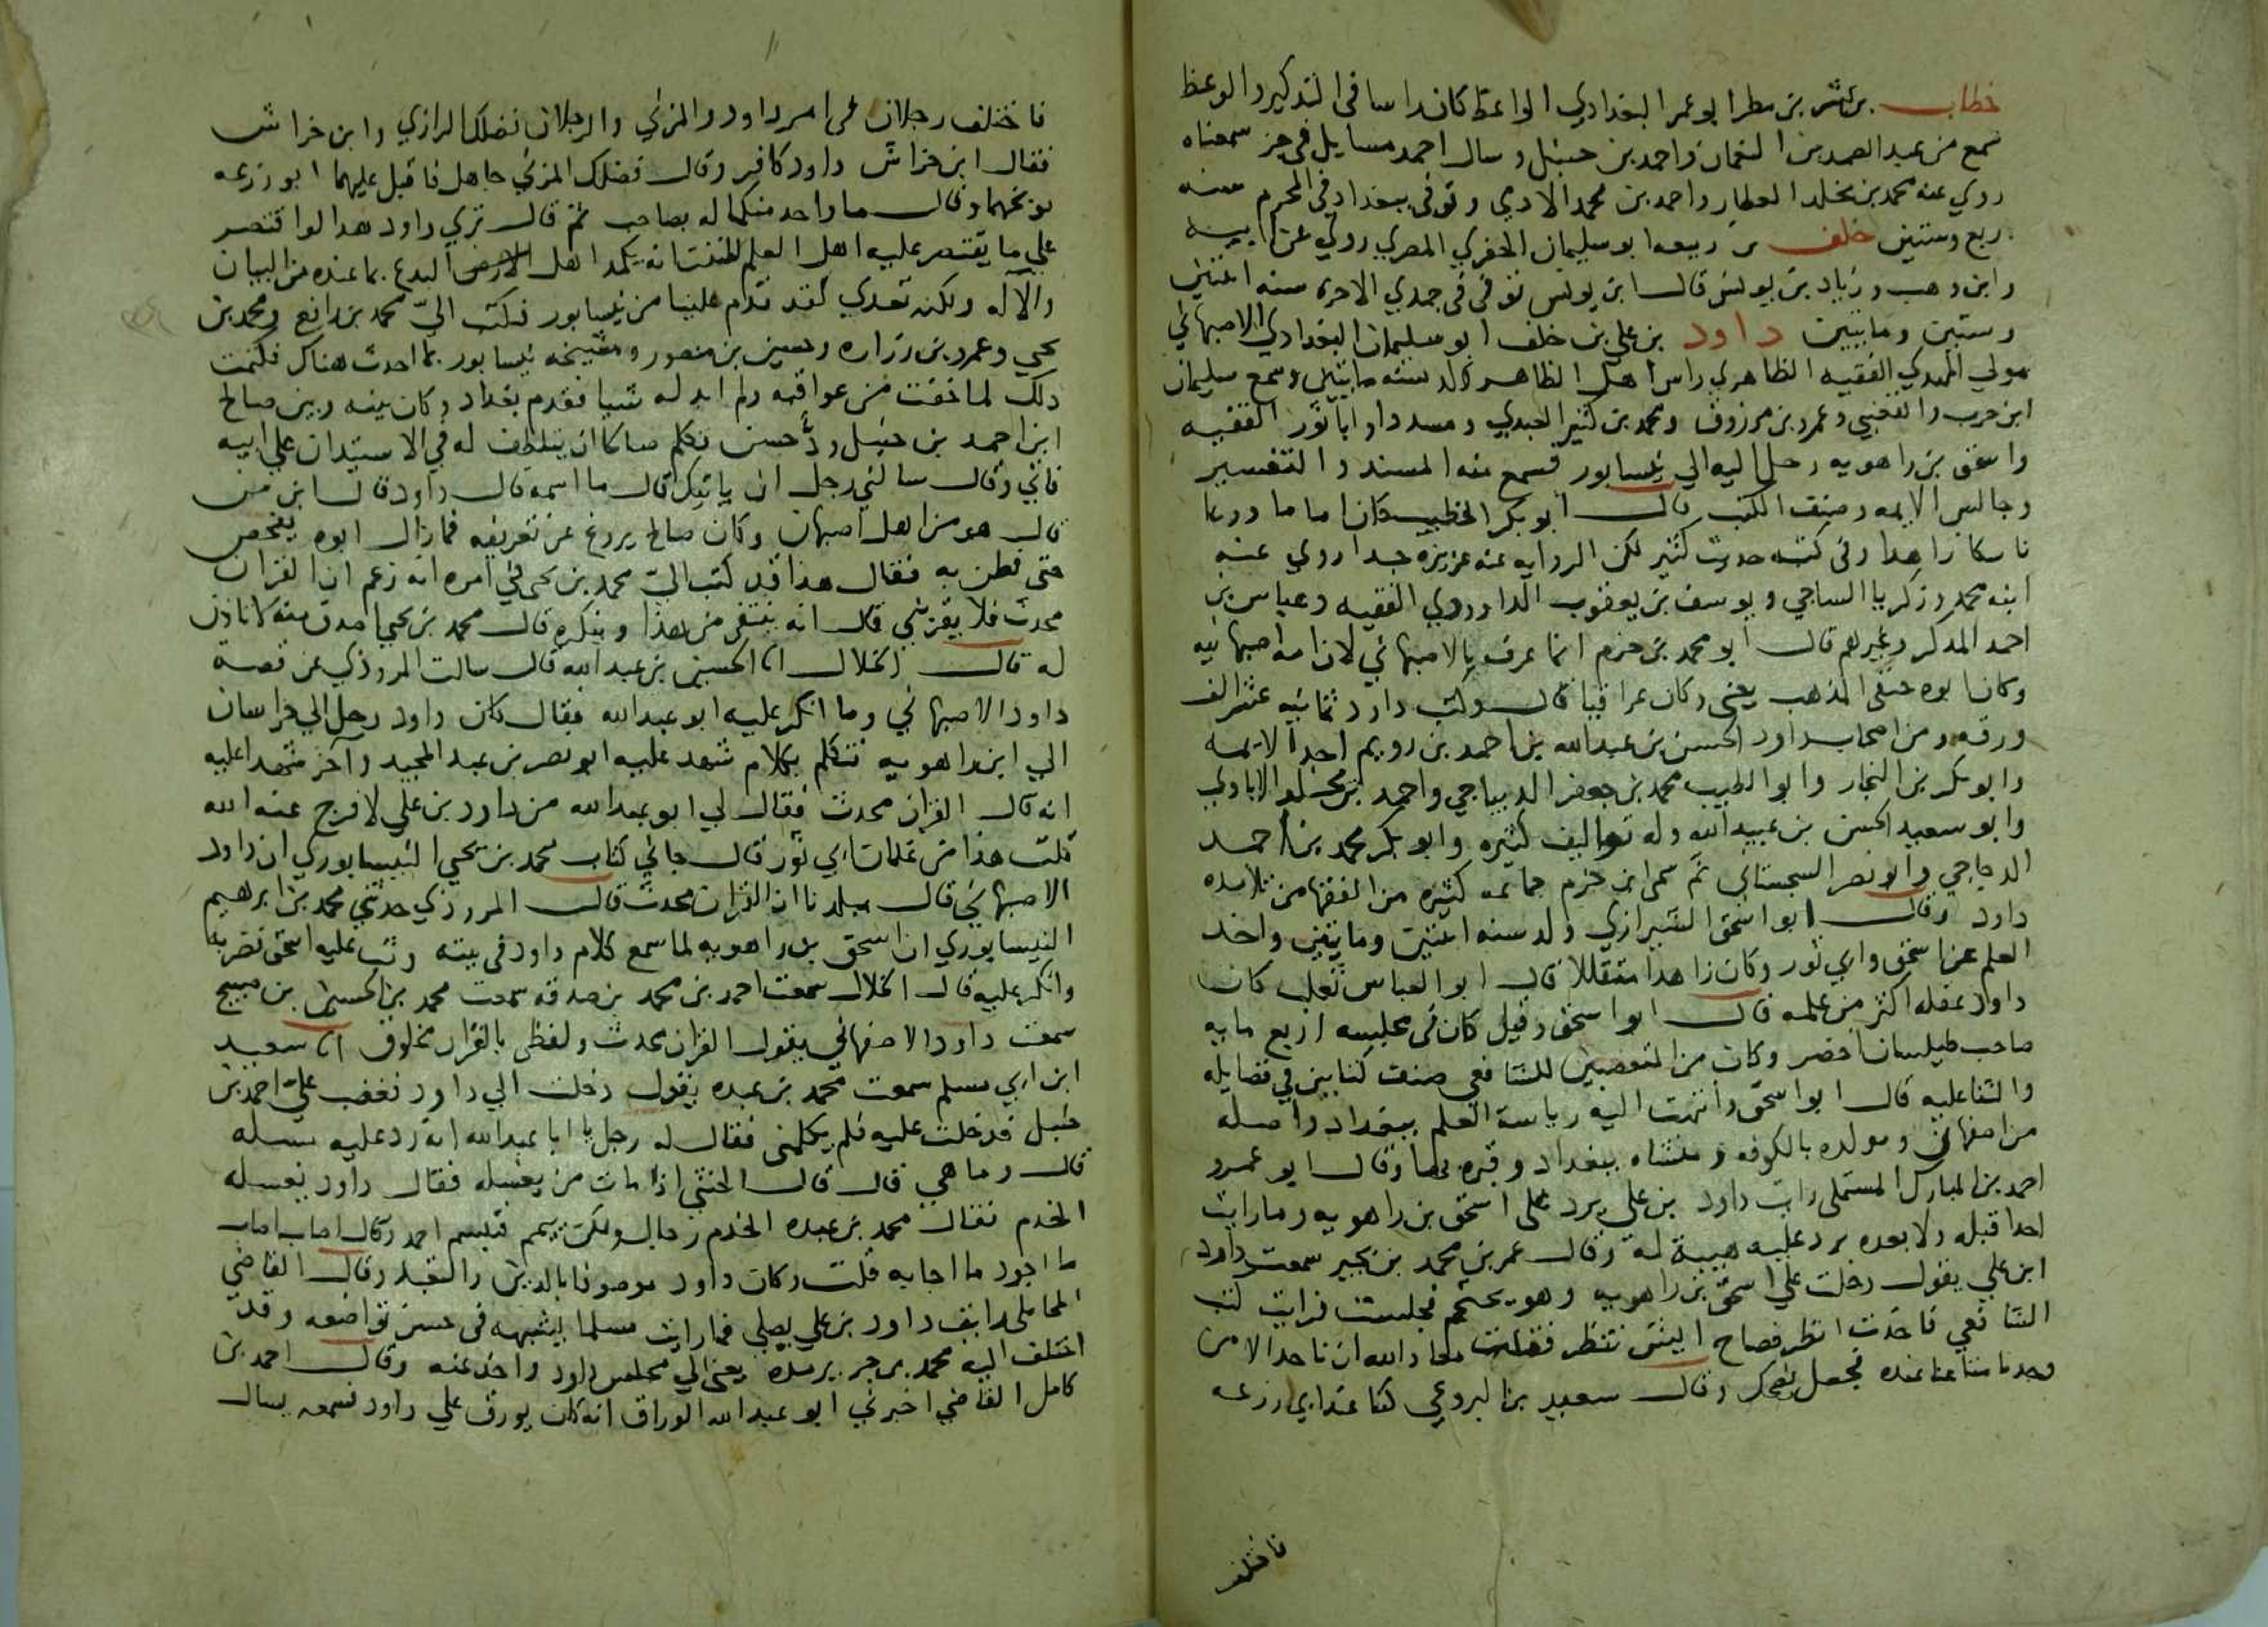 خطاب بن بشر بن مطر ابو عمر البغدادي الواعظ كان راسا في التذكير والوعظ
سمع من عبد الصمد بن النعمان واحمد بن حنبل وسال احمد مسايل في جز سمعناه
روي عنه محمد بن مخلد العطار واحمد بن محمد الادمي وتوفي ببغداد في المحرم سنه
اربع وستين خلف بن ربيعه ابو سليمان الحضري المصري روي عن ابيه
وابن وهب وزياد بن يونس قال ابن يونس توفي في جمدي الاخره سنه اثنتين
وستين ومايتين داود بن علي بن خلف ابو سليمان البغدادي الاصبهاني
مولي المهدي الفقيه الظاهري راس اهل الظاهر ولد سنه مايتين وسمع سليمان
ابن حرب والقعنبي وعمرو بن مرزوق ومحمد بن كثير العبدي ومسددا وابا ثور الفقيه
واسحق بن راهويه رحل اليه الي نيسابور فسمع منه المسند والتفسير
وجالس الايمه وصنف الكتب قال ابو بكر الخطيب كان اماما ورعا
ناسكا زاهدا وفي كتبه حديث كثير لكن الروايه عنه عزيزه جدا روي عنه
ابنه محمد وزكريا الساجي ويوسف بن يعقوب الداوودي الفقيه وعباس بن
احمد المذكر وغيرهم قال ابو محمد بن حزم انما عرف بالاصبهاني لان امه اصبهانيه
وكان ابوه حنفي المذهب يعني وكان عراقيا قال وكتب داود ثمانيه عشر الف
ورقه ومن اصحاب داود الحسن بن عبد الله بن احمد بن رويم احد الايمه
وابو بكر بن النجار وابو الطيب محمد بن جعفر الديباجي واحمد بن مخلد الايادي
وابو سعيد الحسن بن عبيد الله وله تواليف كثيره وابو بكر محمد بن احمد
الدجاجي وابو نصر السجستاني ثم سمي ابن حزم جماعه كثيره من الفقها من تلامذه
داود وقال ابو اسحق الشيرازي ولد سنه اثنتين ومايتين واخذ
العلم عن اسحق وابي ثور وكان زاهدا متقللا قال ابو العباس ثعلب كان
داود عقله اكثر من علمه قال ابو اسحق وقيل كان في مجلسه اربع مايه
صاحب طيلسان اخضر وكان من المتعصبين للشافعي صنف كتابين في فضايله
والثنا عليه قال ابو اسحق وانتهت اليه رياسة العلم ببغداد واصله
من اصفهان ومولده بالكوفه ومنشاه ببغداد وقبره بها وقال ابو عمرو
احمد بن المبارك المستملي رايت داود بن علي يرد علي اسحق بن راهويه وما رايت
احدا قبله ولا بعده يرد عليه هيبة له وقال عمر بن محمد بن بجير سمعت داود
ابن علي يقول دخلت علي اسحق بن راهويه وهو يحتجم فجلست فرايت كتب
الشافعي فاخذت انظر فصاح ايش تنظر فقلت معاذ الله ان ناخذ الا من
وجدنا متاعنا عنده فجعل يضحك وقال سعيد بن البردعي كنا عند ابي زرعه
فاختلف
فاختلف رجلان في امر داود والمزني والرجلان فضلك الرازي وابن خراش
فقال ابن خراش داود كافر وقال فضلك المزني جاهل فاقبل عليهما ابو زرعه
يوبخهما وقال ما واحد منكما له بصاحب ثم قال تري داود هذا لو اقتصر
علي ما يقتصر عليه اهل العلم لظننت انه يكمد اهل البدع بما عنده من البيان
والاله ولكنه تعدي لقد قدم علينا من نيسابور فكتب اليّ محمد بن رافع ومحمد بن
يحيي وعمرو بن زراره وحسين بن منصور ومشيخه نيسابور بما احدث هناك فكتمت
ذلك لما خفت من عواقبه ولم ابد له شيا فقدم بغداد وكان بينه وبين صالح
ابن احمد بن حنبل حسن فكلم صالحا ان يتلطف له في الاستيذان علي ابيه
فاتي وقال سالني رجل ان ياتيك قال ما اسمه قال داود قال ابن من
قال هو من اهل اصبهان وكان صالح يروغ عن تعريفه فما زال ابوه يفحص
حتي فطن به فقال هذا قد كتب اليّ محمد بن يحيي في امره انه زعم ان القران
محدث فلا يقربني قال انه ينتفي من هذا وينكره قال محمد بن يحيي اصدق منه لا تاذن
له قال الخلال انا الحسين بن عبد الله قال سالت المروذي عن قصة
داود الاصبهاني وما انكر عليه ابو عبد الله فقال كان داود رحل الي خراسان
الي ابن راهويه فتكلم بكلام شهد عليه ابو نصر بن عبد المجيد وآخر شهدا عليه
انه قال القران محدث فقال لي ابو عبد الله من داود بن علي لا فرج عنه الله
قلت هذا من غلمان ابي ثور قال جاني كتاب محمد بن يحيي النيسابوري ان داود
الاصبهاني قال ببلدنا ان القران محدث قال المروذي حدثني محمد بن ابرهيم
النيسابوري ان اسحق بن راهويه لما سمع كلام داود في بيته وثب عليه اسحق فضربه
وانكر عليه قال الخلال سمعت احمد بن محمد بن صدقه سمعت محمد بن الحسين بن صبيح
سمعت داود الاصفهاني يقول القران محدث ولفظي بالقران مخلوق انا سعيد
ابن ابي مسلم سمعت محمد بن عبده يقول دخلت الي داود فغضب علي احمد بن
حنبل فدخلت عليه فلم يكلمني فقال له رجل يا ابا عبد الله انه رد عليه مسله
قال وما هي قال قال الخنثي اذا مات من يغسله فقال داود يغسله
الخدم فقال محمد بن عبده الخدم رجال ولكن ييمم فتبسم احمد وقال اصاب اصاب
ما اجود ما اجابه قلت وكان داود موصوفا بالدين والتعبد وقال القاضي
المحاملي رايت داود بن علي يصلي فما رايت مسلما يشبهه في حسن تواضعه وقد
اختلف اليه محمد بن جرير مده يعني الي مجلس داود واخذ عنه وقال احمد بن
كامل القاضي اخبرني ابو عبد الله الوراق انه كان يورق علي داود فسمعه يسال